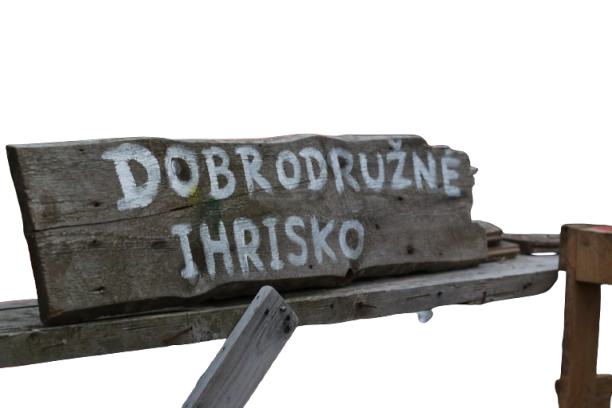 DOBRODRUŽNÉ
IHRISKO